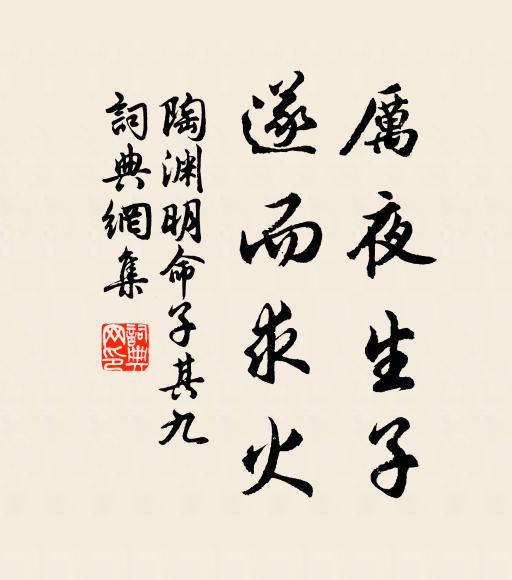 厲夜生子
遂而求火
陶渊明命子其九
詞典網集
詞典
网印